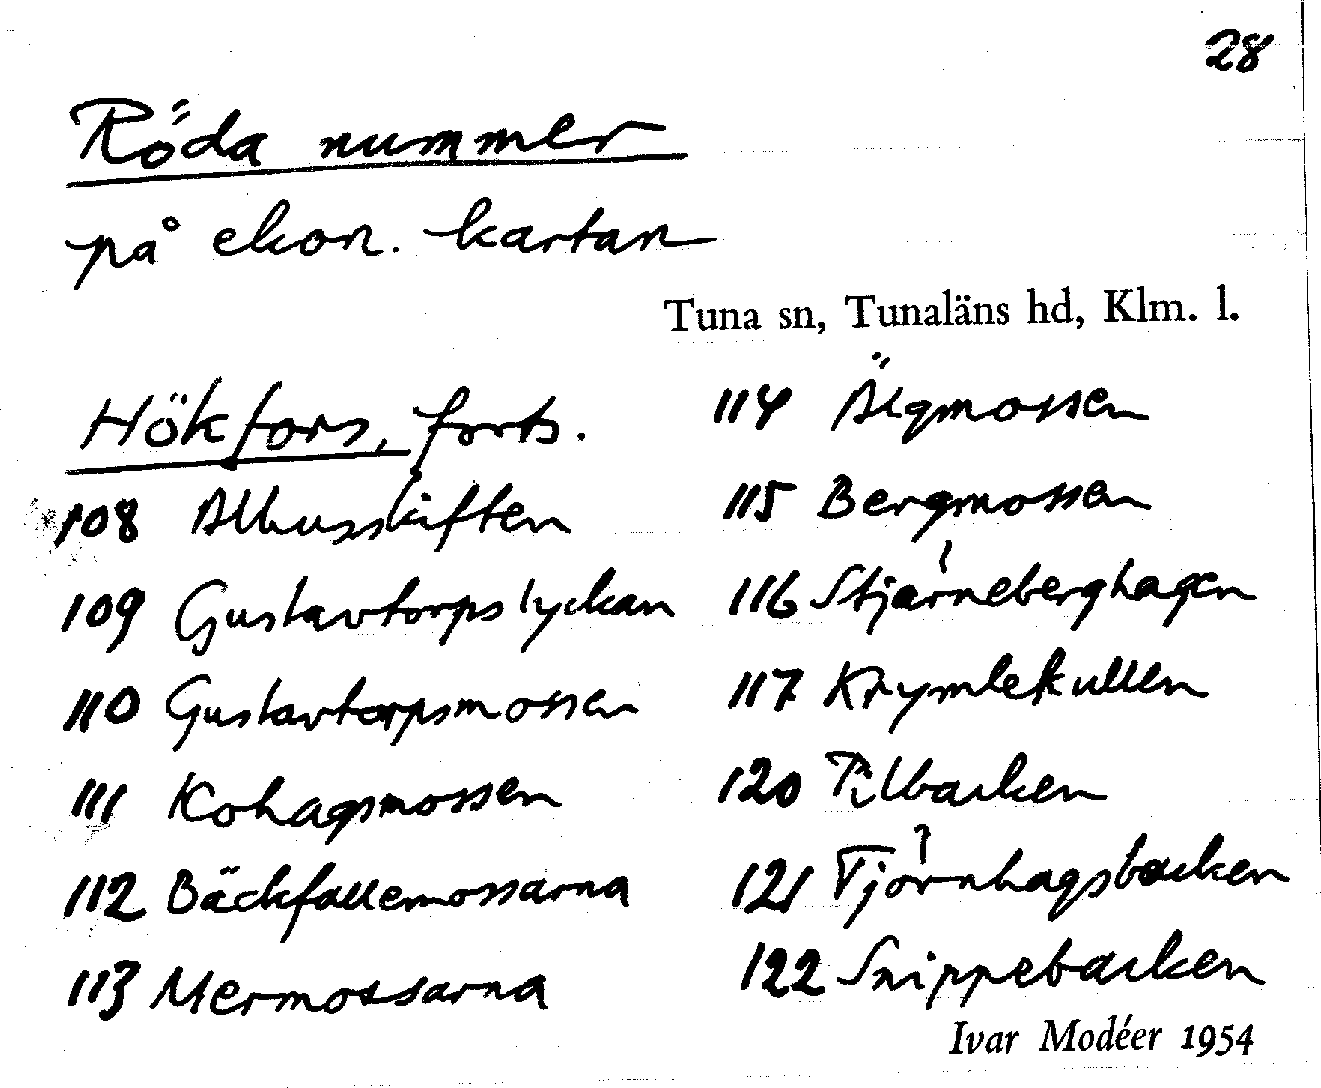 28
Röda nummer
på ekon. kartan
Tuna sn, Tunaläns hd, Klm. l.
Hökfors, forts.
108 Allhusskiften
109 Gustavtorpslyckan
110 Gustavtorpsmossen
111 Kohagsmossen
112 Bäckfallemossarna
113 Mermossarna
114 Älgmossen
115 Bergmossen
116 Stjärneberghagen
117 Krymlekullen
120 Pilbacken
121 Tjörnhagsbacken
122 Snippebacken
Ivar Modéer 1954